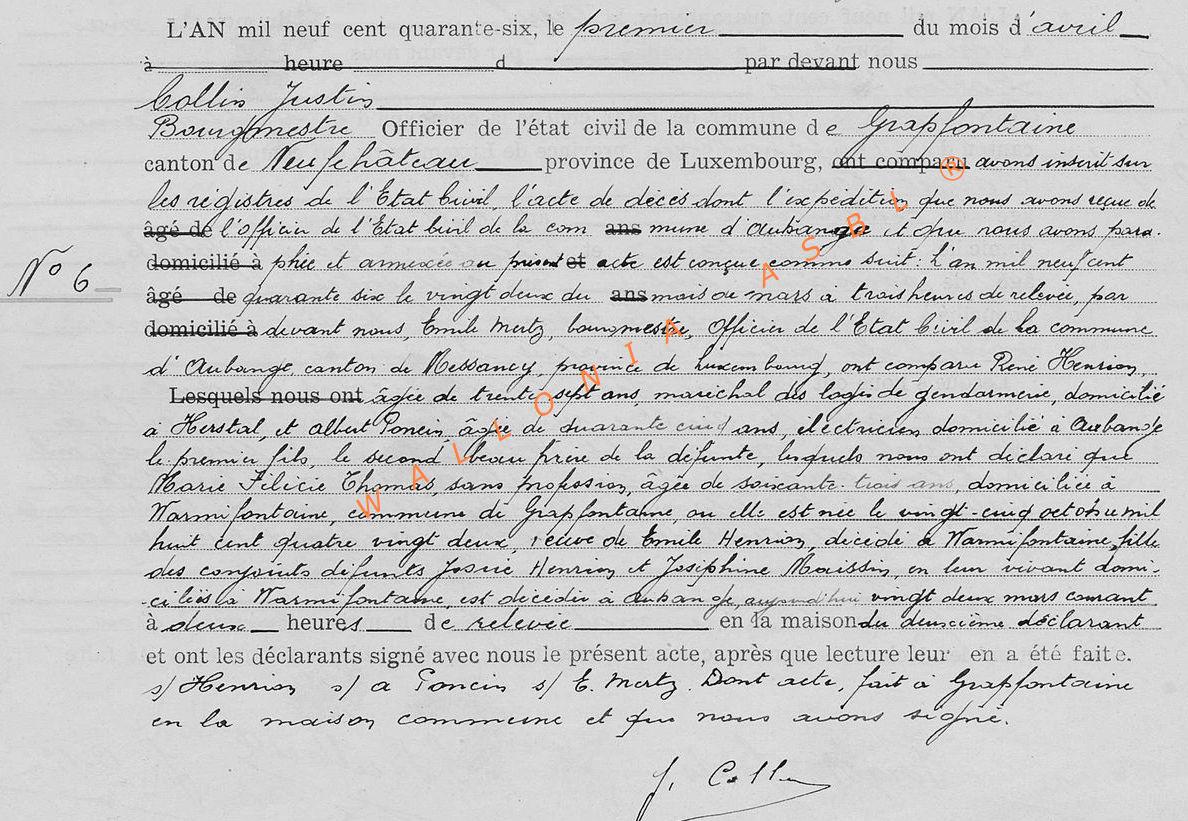 L'AN mil neuf cent quarante-six, le premier du mois d'avril
à heure d par devant nous
Collin Justin
Bourgmestre Officier de l'état civil de la commune de Grapfontaine
canton de Neufchâteau province de Luxembourg, ont comparu avons inscrit sur
les régistres de l'Etat Civil, l'acte de décès dont l'expédition que nous avons reçue de
âgé de l'officier de l'Etat Civil de la com ans mune d'Aubange et que nous avons para-
N° 6 domicilié à phée et annexée au présent et acte est conçue comme suit: L'an mil neuf cent
âgé de quarante six le vingt deux du ans mois de mars à trois heures de relevée, par
domicilié à devant nous, Emile Mertz, bourgmestre, Officier de l'Etat Civil de la commune
d'Aubange canton de Messancy, province de Luxembourg, ont comparu René Henrion,
Lesquels nous ont âgée de trente sept ans, maréchal des logis de gendarmerie, domicilié
à Herstal, et Albert Poncin, âgée de quarante cinq ans, électricien domicilié à Aubange
le premier fils, le second beau frère de la défunte, lesquels nous ont déclaré que
Marie Félicie Thomas, sans profession, âgée de soixante-trois ans, domiciliée à
Warmifontaine, commune de Grapfontaine, ou elle est née le vingt-cinq octobre mil
huit cent quatre vingt deux, veuve de Emile Henrion, décédé à Warmifontaine, fille
des conjoints défunts Josué Henrion et Joséphine Maissin, en leur vivant domi-
ciliés à Warmifontaine, est décédée à Aubange, aujourd'hui vingt deux mars courant
à deux heures de relevée en la maison du deuxième déclarant
et ont les déclarants signé avec nous le présent acte, après que lecture leur en a été faite.
s/ Henrion s/ A Poncin s/ E. Mertz. Dont acte, fait à Grapfontaine
en la maison commune et que nous avons signé.
J. Collin
WALLONIA ASBL ®